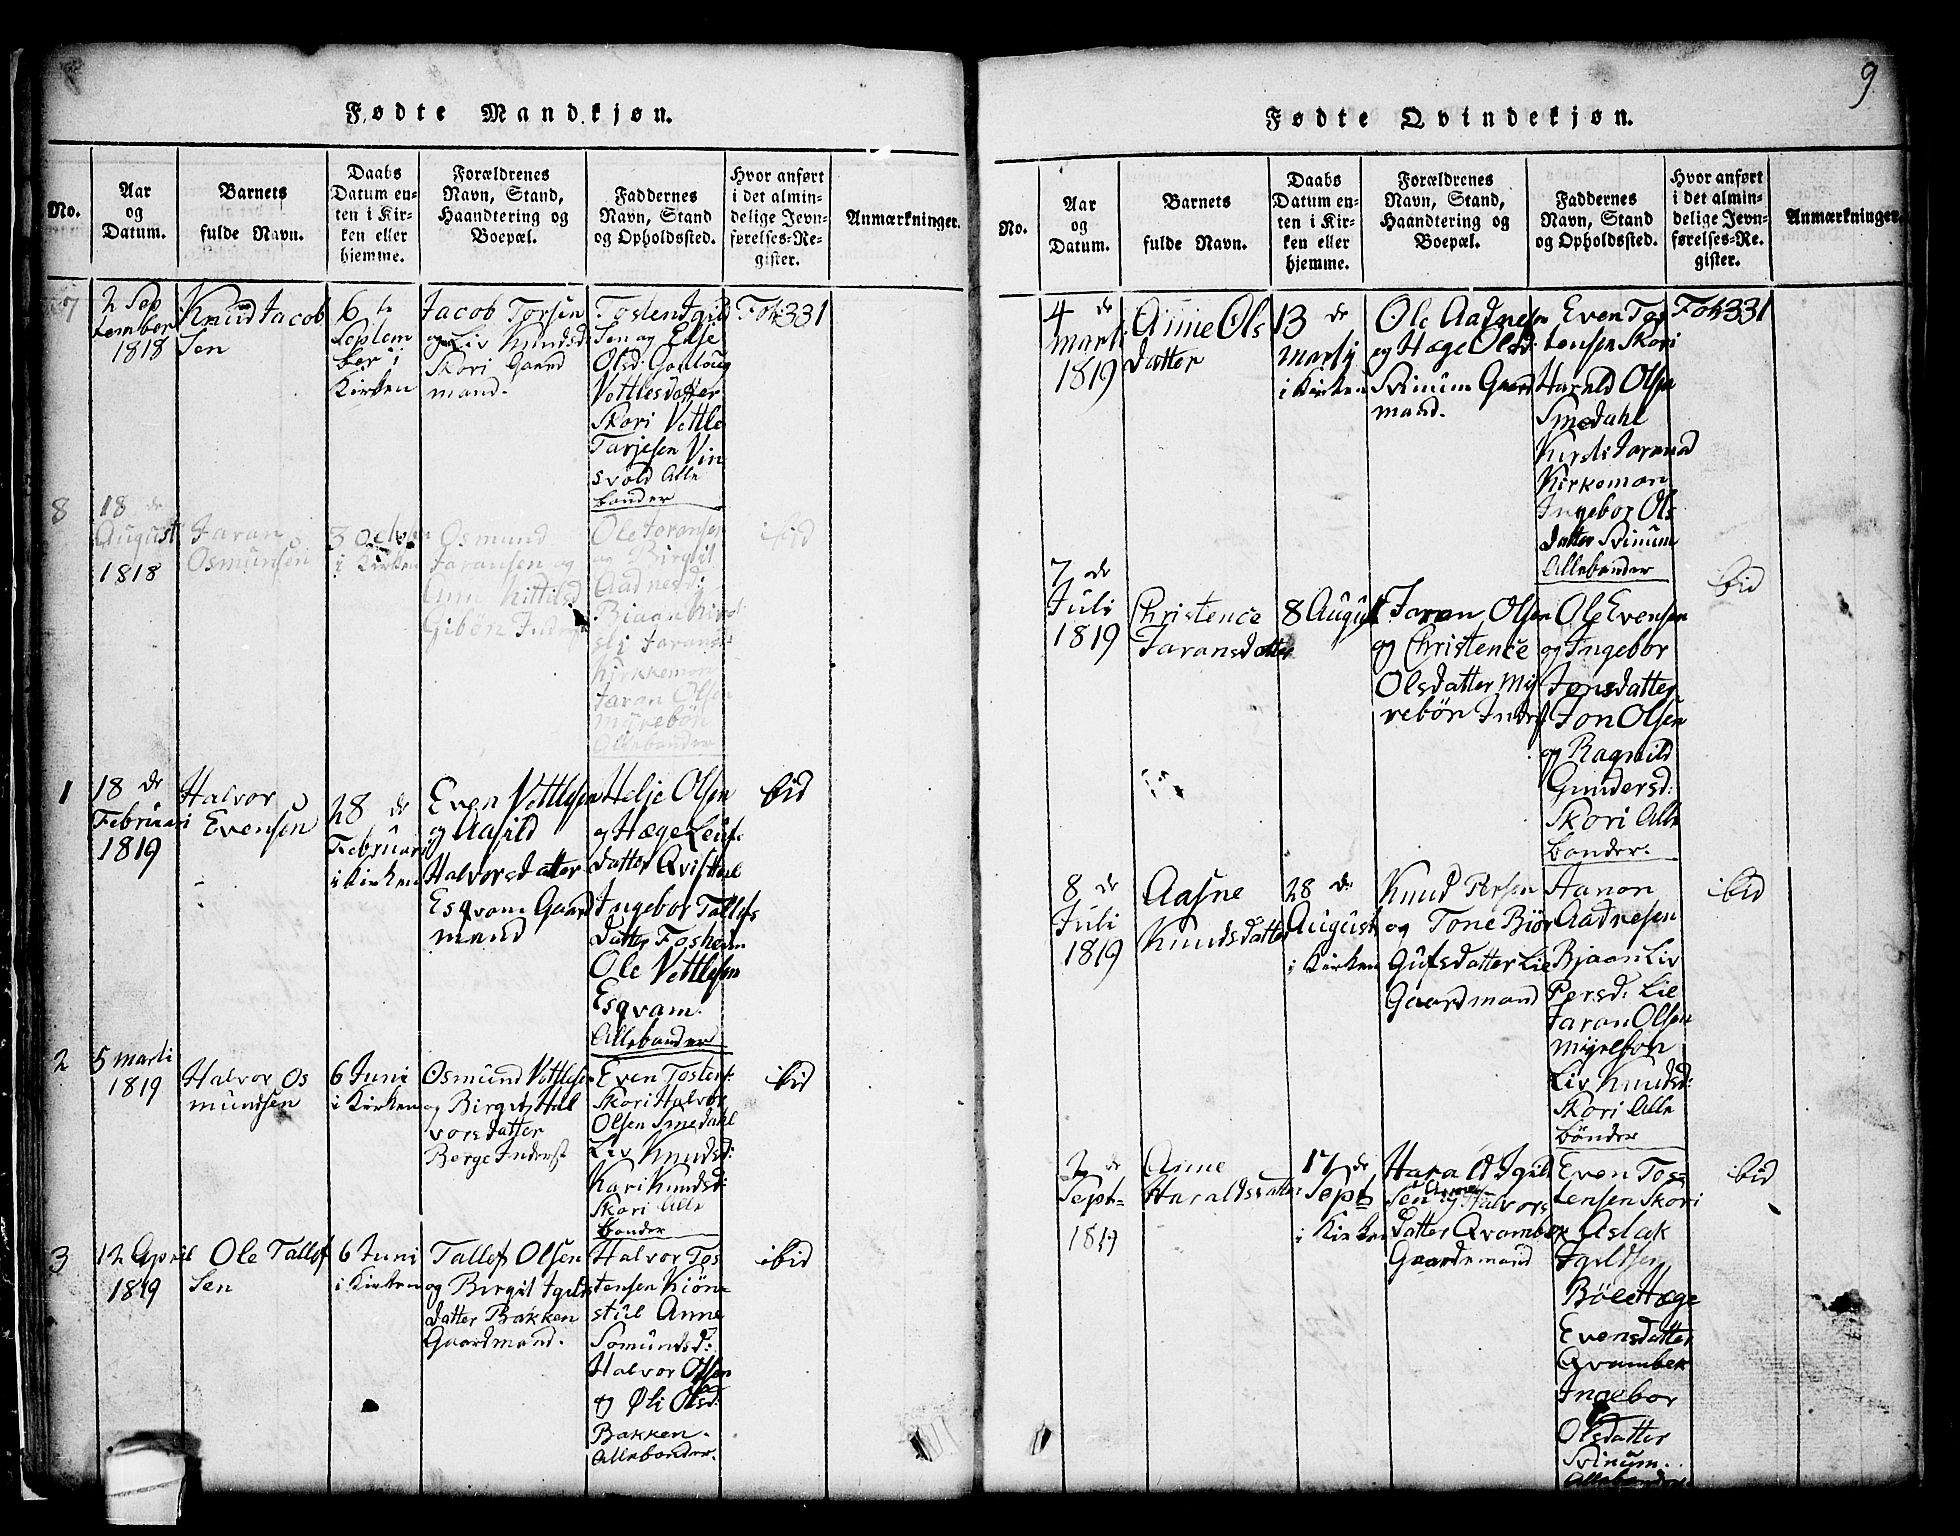 9
Fødte Mandkjøn.
No.
Aar
og
Datum.
Barnets
fulde Navn.
Daabs
Datum en-
ten i Kir-
ken eller
hjemme.
Forældrenes
Navn, Stand,
Haandtering og
Boepæl.
Faddernes
Navn, Stand
og Opholdssted.
Hvor anført
i det almin-
delige Jevn-
førelses-Re-
gister.
Anmærkninger.
7
2 Sep
tember
1818
Knud Jacob
Sen
6 te
Septem
ber i
Kirken
Jacob Torsen
og Liv Knudsd
Skori Gaard
mand.
Tosten Igild
Sen og Else
Olsd Gonloug
Vettlesdatter
Skori Vettle
Tarjesen Vin
svold Alle
bonder
Fol 331
8
18 de
August
1818
Jaran
Osmunsen
3 octobr
i Kirken
Osmund
Jaransen og
Ann Kittilsd
Gibøn Inderst
Ole Joransen
og Birgit
Aadnesd:
Bjaan Kir
sti Jarans
Kirkemon
Jaran Olsen
Myrebøn
Allebonder
ibid
1
18 de
Februari
1819
Halvor
Evensen
28 de
Februari
i Kirken
Even Vettlesen
og Aasild
Halvorsdatter
Esqvam Gaard
mand
Helje Olsen
og Hæge Leuf
datter Qvisthul
Ingebor Tallefs
datter Foshem
Ole Vettlesen
Esqvam.
Allebonder
ibid
2
5 marti
1819
Halvor Os
mundsen
6 Juni
i Kirken
Osmund Vettlesen
og Birgit Hal
vorsdatter
Berge Inderst
Even Tostens:
Skori Halvor
Olsen Smedahl
Liv Knudsd:
Kari Knudsd:
Skori Alle
bonder
ibid
3
12 April
1819
Ole Tallef
Sen
6 Juni
i Kirken
Tallef Olsen
og Birgit Igilds
datter Bakken
Gaardmand.
Halvor Tos
tensen Kiøn-
stul Anne
Somundsd:
Halvor Olsen
og Øli Olsd:
Bakken.
Allebonder.
ibid
Fødte Qvindekjøn.
No.
Aar
og
Datum.
Barnets
fulde Navn.
Daabs
Datum en-
ten i Kir-
ken eller
hjemme.
Forældrenes
Navn, Stand,
Haandtering og
Boepæl.
Faddernes
Navn, Stand
og Opholdssted.
Hvor anført
i det almin-
delige Jevn-
førelses-Re-
gister.
Anmærkninger.
4 de
marti
1819
Anne Ols
datter
13 de
martij
i Kirken
Ole Aadnesen
og Hæge Olsd:
Svinum Gaard
mand.
Even Tos
tensen Skori
Harald Olsen
Smedahl
Kirsti Jaransd
Kirkemon
Ingebor Ols
datter Svinum
Allebonder
Fol 331
7 de
Juli
1819
Christence
Jaransdatter
8 August
Jaran Olsen
og Christence
Olsdatter My
rebøn Inderst
Ole Evensen
og Ingebor
Jonsdatter
Jon Olsen
og Ragnild
Gundersd:
Skori Alle
bonder.
ibid
8 de
Juli
1819
Aasne
Knudsdatter
28 de
August
i Kirken
Knud Persen
og Tone Biør
Gulsdatter Lie
Gaardmand
Hanon
Aadnesen
Bjaan Liv
Persd: Lie
Jaran Olsen
Myrebøn
Liv Knudsd:
Skori Alle
bønder
ibid
2 de
Sept-
1819
Anne
Haraldsdatter
17 de
Sept
i Kirken
Harald Igild
Sen og Halvors
datter Qvambek
Gaardemand
Even Tos-
tensen Skori
Aslak
Igildsen
Bøle Hæge
Evensdatter
Qvambek
Ingebor
Olsdatter
Svinum.
Allebonder
ibid